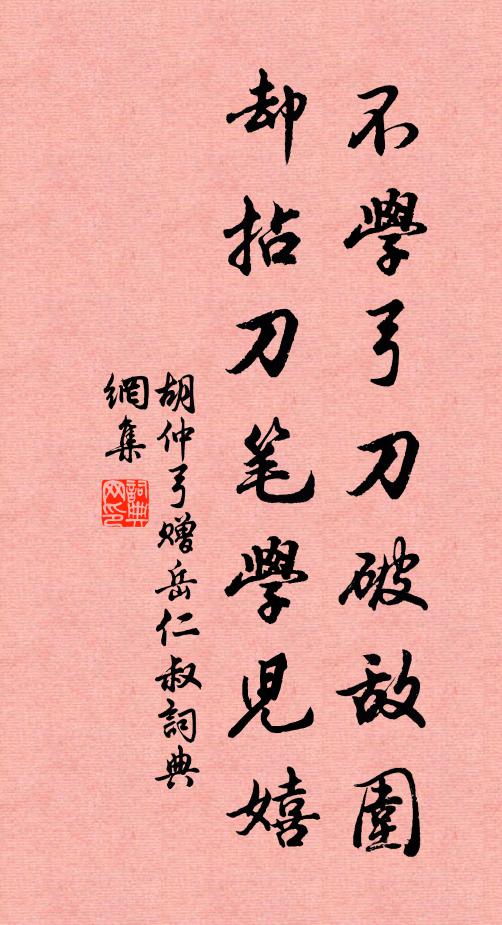 不學弓刀破敌圍
却拈刀笔學児嬉
胡仲弓贈岳仁叔詞典
網集
詞典
网印